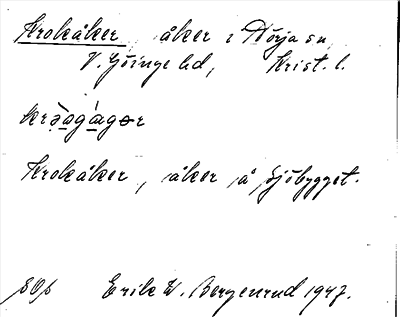 Krokåker, åker i Norja sn
V. Göinge hd, Krist. l.
kròagágər
Krokåker, åker å Sjöbygget.
Erik W. Bergenrud 1947.